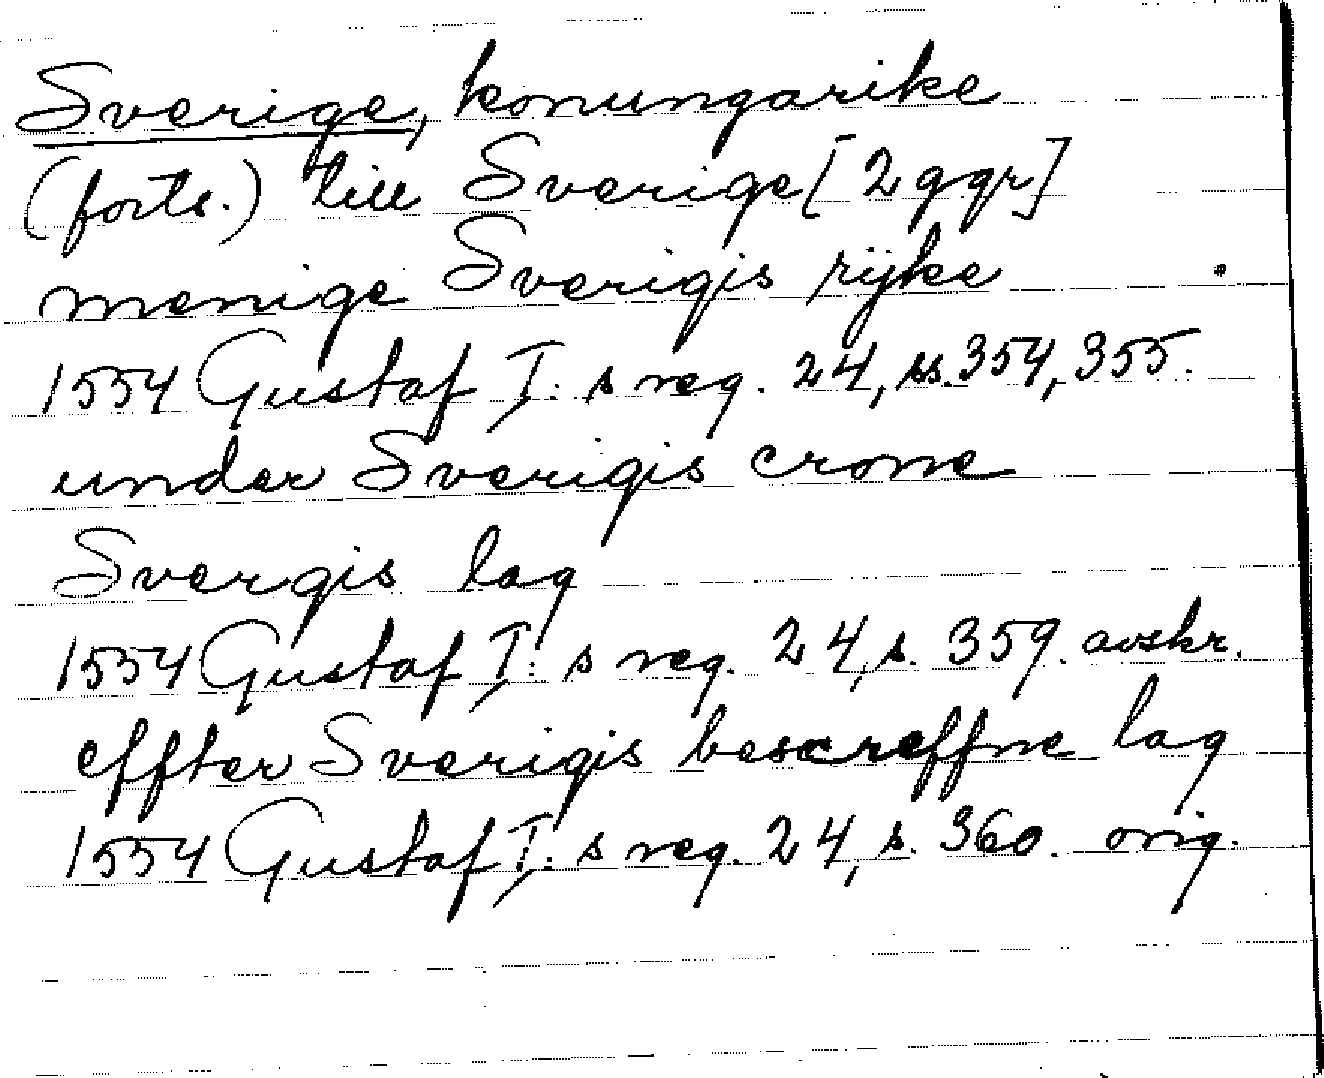 Sverige, konungarike
(forts.) till Sverige [2 ggr]
menige Sverigis rijke
1554 Gustaf I: s reg. 24, ss. 354, 355.
under Sverigis crone
Svergis lag
1554 Gustaf I: s reg. 24, s. 359. avskr.
effter Sverigis bescreffne lag
1554 Gustaf I: s reg. 24, s. 360. orig.